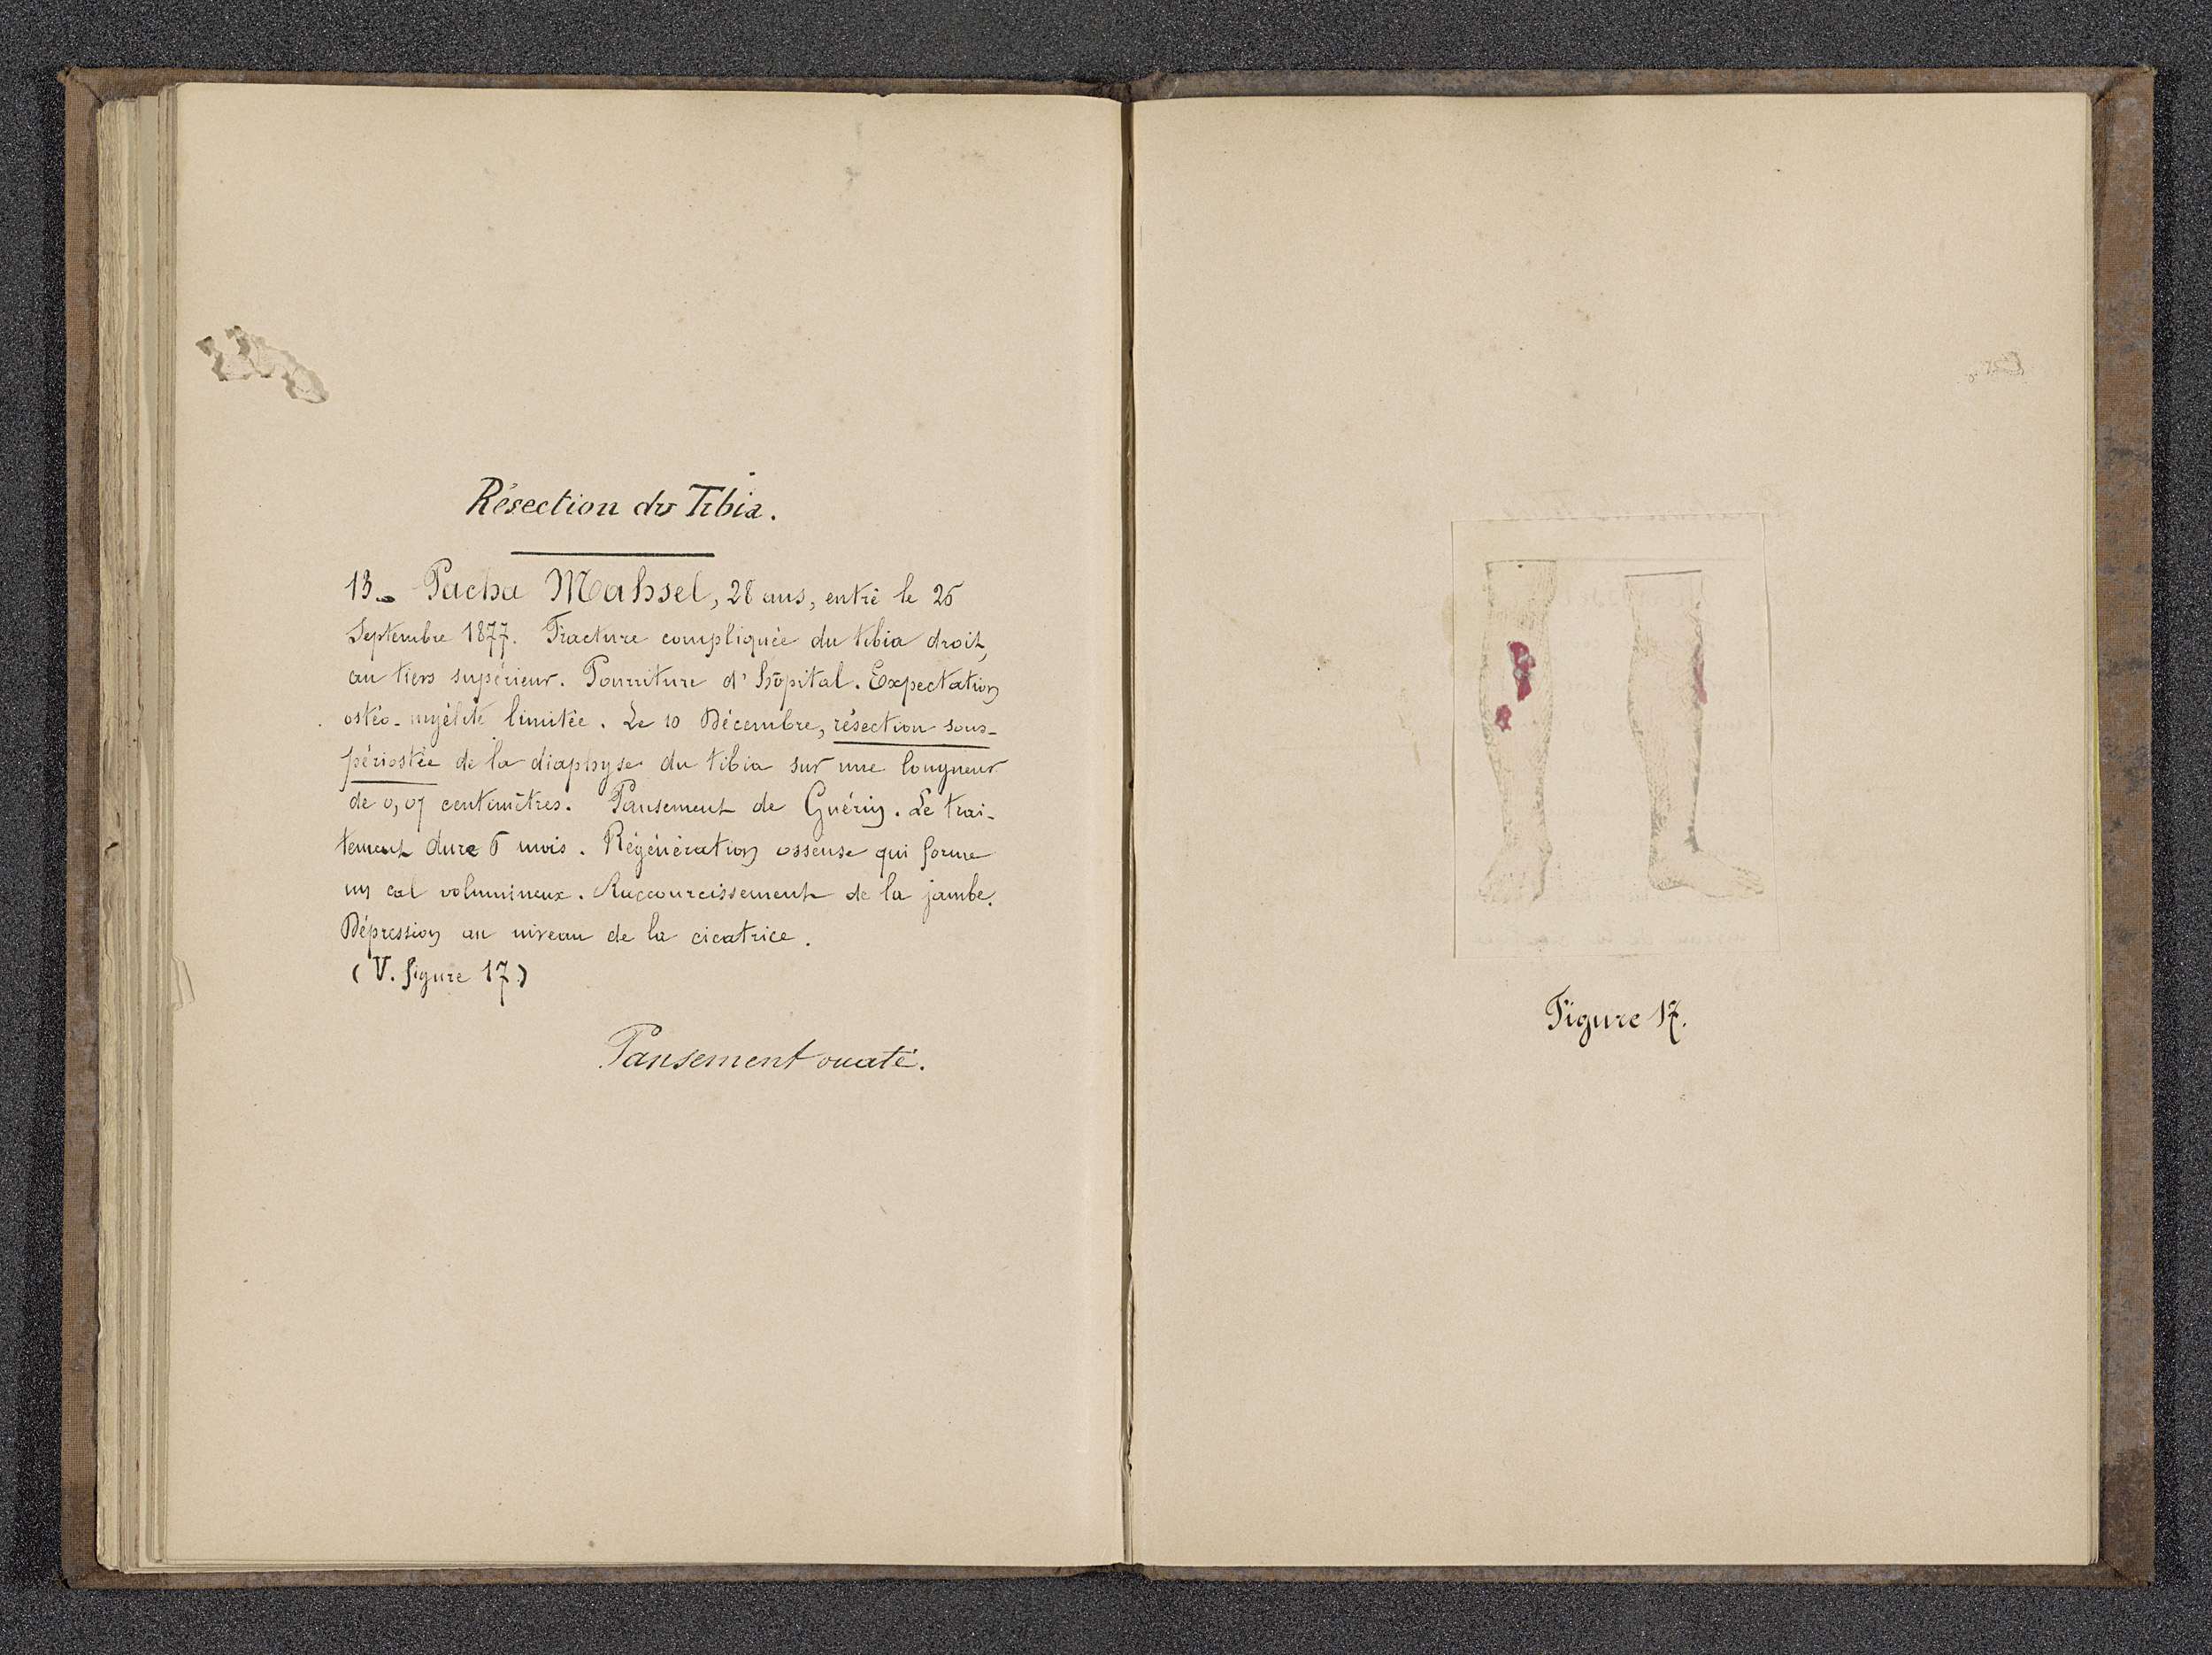 Résection du Tibia.
13_ Pacha Mahsel, 28 ans, entré le 26
Septembre 1877. Fracture compliquée du tibia droit,
au tiers supérieur. Pourriture d'hôpital. Expectation
ostéo-myélite limitée. Le 10 Décembre, résection sous-
périostée de la diaphyse du tibia sur une longueur
de 0,07 centimètres. Pansement de Guérin. Le trai-
tement dure 6 mois. Régénération osseuse qui forme
un cal volumineux. Raccourcissement de la jambe.
Dépression au niveau de la cicatrice.
(V. figure 17.)
Pansement ouaté.
Figure 17.